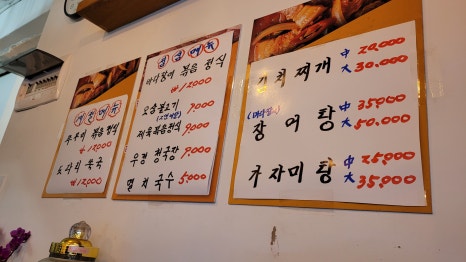 쭈꾸미 볶음정식
₩ 12,000
₩ 12,000
점심메뉴
바다장어 볶음 정식
₩ 12,000
오삼불고기 9,000
제육볶음정식 9,000
우렁 청국장 9,000
멸치 국수 5,000
김치찌개 中 20,000
大 30,000
장어탕 中 35,000
大 50,000
가자미탕 中 25,000
大 35,000